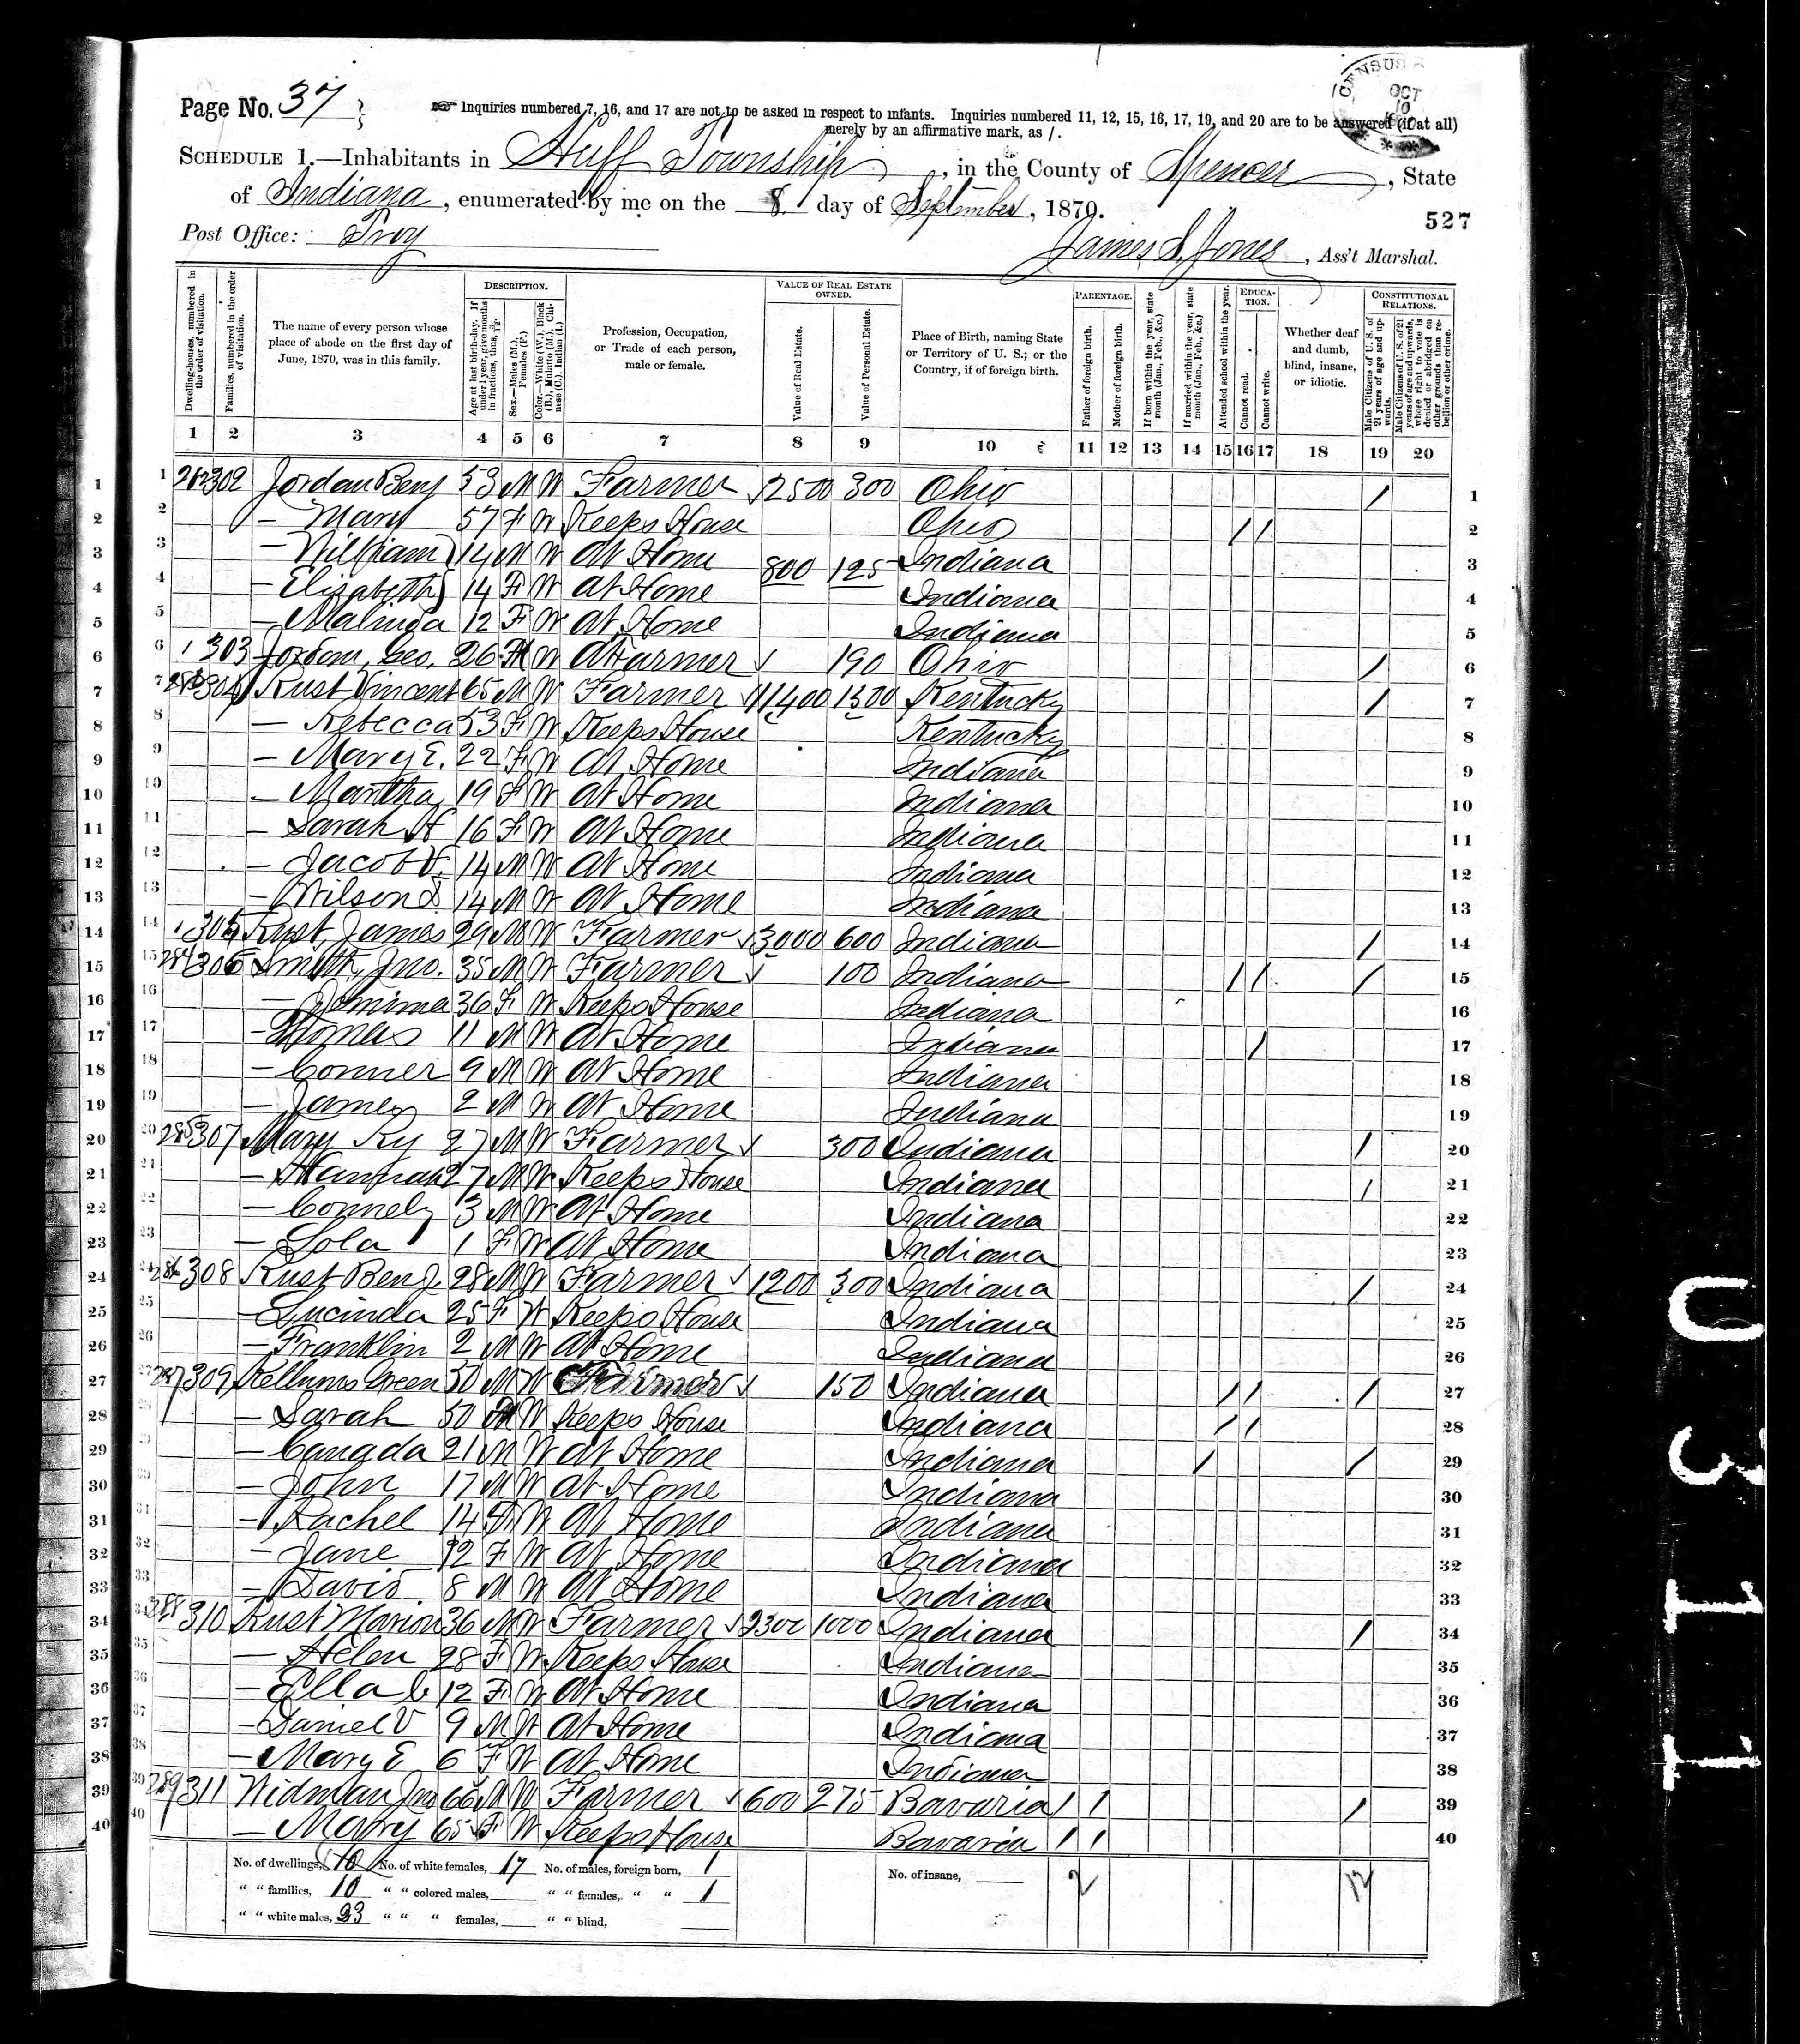 Page No. 37
Inquiries numbered 7, 16, and 17 are not to be asked in respect to infants. Inquiries numbered 11, 12, 15, 16, 17, 19, and 20 are to be answered (if at all)
merely by an affirmative mark, as /.
CENSUS OCT 10
SCHEDULE 1.—Inhabitants in Huff Township, in the County of Spencer, State
of Indiana, enumerated by me on the 8 day of September, 1870.
527
Post Office: Troy James S. Jones, Ass't Marshal.
Dwelling-houses, numbered in the order of visitation.
Families, numbered in the order of visitation.
The name of every person whose place of abode on the first day of June, 1870, was in this family.
DESCRIPTION.
Age at last birth-day. If under 1 year, give months in fractions, thus, 3/12.
Sex.—Males (M.), Females (F.)
Color.—White (W.), Black (B.), Mulatto (M.), Chinese (C.), Indian (I.)
Profession, Occupation, or Trade of each person, male or female.
VALUE OF REAL ESTATE OWNED.
Value of Real Estate.
Value of Personal Estate.
Place of Birth, naming State or Territory of U. S.; or the Country, if of foreign birth.
PARENTAGE.
Father of foreign birth.
Mother of foreign birth.
If born within the year, state month (Jan., Feb., &c.)
If married within the year, state month (Jan., Feb., &c.)
Attended school within the year.
EDUCATION.
Cannot read.
Cannot write.
Whether deaf and dumb, blind, insane, or idiotic.
CONSTITUTIONAL RELATIONS.
Male Citizens of U. S. of 21 years of age and upwards.
Male Citizens of U. S. of 21 years of age and upwards, whose right to vote is denied or abridged on other grounds than rebellion or other crime.
1 2 3 4 5 6 7 8 9 10 11 12 13 14 15 16 17 18 19 20
1 282 302 Jordan Benj 53 M W Farmer 2500 300 Ohio / 1
2 — Mary 57 F W Keeps House Ohio / / 2
3 — William 14 M W At Home 800 125 Indiana 3
4 — Elizabeth 14 F W At Home Indiana 4
5 — Malinda 12 F W At Home Indiana 5
6 303 Jordan, Geo. 26 M W Farmer 190 Ohio / 6
7 304 Rust Vincent 65 M W Farmer 11400 1300 Kentucky / 7
8 — Rebecca 53 F W Keeps House Kentucky 8
9 — Mary E. 22 F W At Home Indiana 9
10 — Martha 19 F W At Home Indiana 10
11 — Sarah H 16 F W At Home Indiana 11
12 — Jacob V. 14 M W At Home Indiana 12
13 — Wilson 14 M W At Home Indiana 13
14 305 Rust, James 29 M W Farmer 3000 600 Indiana / 14
15 284 306 Smith, Jno. 35 M W Farmer 100 Indiana / / / 15
16 — Jemima 36 F W Keeps House Indiana 16
17 — Thomas 11 M W At Home Indiana / 17
18 — Conner 9 M W At Home Indiana 18
19 — James 2 M W At Home Indiana 19
20 285 307 27 M W Farmer 300 Indiana / 20
21 — Hannah 27 M W Keeps House Indiana / 21
22 — Connely 3 M W At Home Indiana 22
23 — Lola 1 F W At Home Indiana 23
24 286 308 Rust Benj. 28 M W Farmer 1200 300 Indiana / 24
25 — Lucinda 25 F W Keeps House Indiana 25
26 — Franklin 2 M W At Home Indiana 26
27 287 309 Kellums Green 50 M W Farmer 150 Indiana / / / 27
28 — Sarah 50 W Keeps House Indiana / / 28
29 — 21 M W At Home Indiana / / 29
30 — John 17 M W At Home Indiana 30
31 — Rachel 14 F W At Home Indiana 31
32 — Jane 12 F W At Home Indiana 32
33 — David 8 M W At Home Indiana 33
34 288 310 Rust Marion 36 M W Farmer 2300 1000 Indiana / 34
35 — Helen 28 F W Keeps House Indiana 35
36 — Ella C 12 F W At Home Indiana 36
37 — Daniel V 9 M W At Home Indiana 37
38 — Mary E 6 F W At Home Indiana 38
39 289 311 Widman Jno 66 M W Farmer 600 275 Bavaria / / / 39
40 — Mary 65 F W Keeps House Bavaria / / 40
No. of dwellings, 10 No. of white females, 17 No. of males, foreign born, 1 No. of insane, 2 12
" " families, 10 " " colored males, " " females, " " 1
" " white males, 23 " " " females, " " blind,
0311